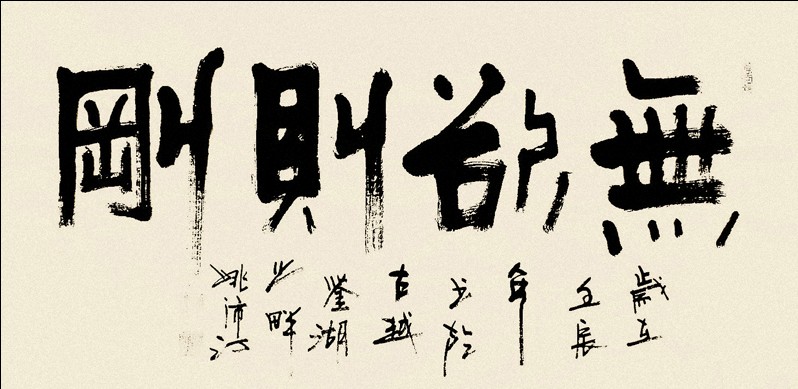 無欲則剛
歲在
壬辰
年
書於
古越
鑒湖
之畔
姚沛江